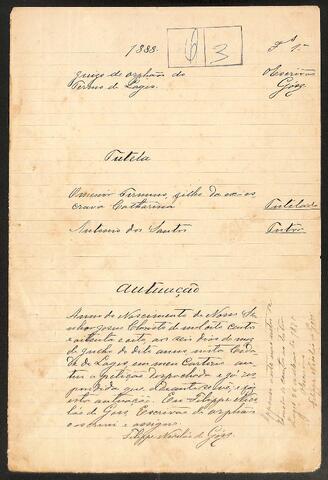 1888.
63
Fs 1.
Juizo de orphãos do
Termo de Lages.
O Escrivão
Góss.
Tutela
O menor Firmino, filho da ex-es
crava Catharina
Tutelado
Antonio dos Santos
Tutor
Autuação
Anno do Nascimento de Nosso Se
nhor Jesus Christo de mil oito centos
e oitenta e oito, aos seis dias do mez
de Junho do dito anno nesta Cida
de de Lages em meu Cartorio
au a petição despachada
que adiante se vê, e fiz
esta autuação. Eu Filippe Nico
láo de Góss. Escrivão de orphãos
o escrevi e assigno.
Filippe Nicoláo de Góss.